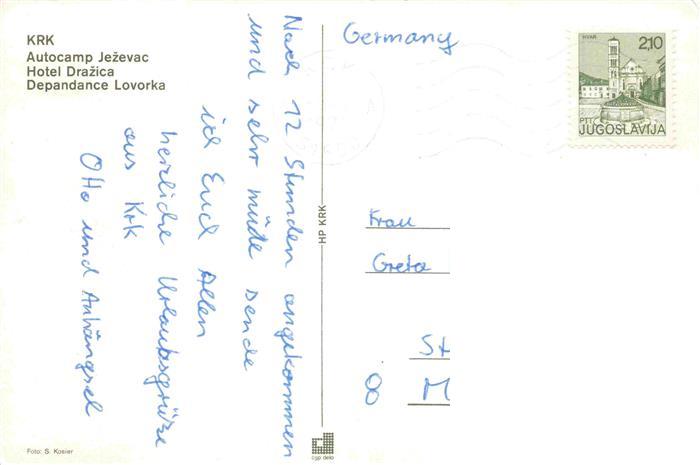 KRK
Autocamp Ježevac
Hotel Dražica
Depandance Lovorka
Nach 12 Stunden angekommen
und sehr müde sende
ich Euch Allen
herzliche Urlaubsgrüße
aus Krk
Otto und Anhängsel
Foto: S. Kosier
HP KRK
cgp delo
Germany
HVAR
2,10
PTT
JUGOSLAVIJA
Frau
Greta
St
8 M